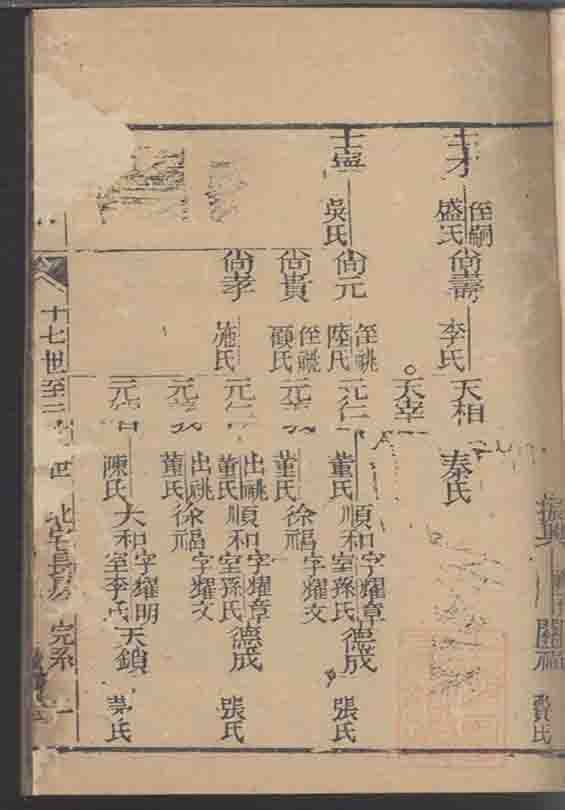 士才
侄嗣
盛氏
尙壽
李氏
天相
秦氏
天宰
士寧
吳氏
尙元
侄祧
陸氏
元仁
董氏
順和
字耀章
室孫氏
德成
張氏
尙貴
侄祧
顧氏
元義
董氏
徐福
字耀文
尙孝
施氏
元仁
出祧
董氏
順和
字耀章
室孫氏
德成
張氏
元義
出祧
董氏
徐福
字耀文
陳氏
大和
字耀明
室李氏
天鎖
茅氏
十七世至二
世
長房
完系
一
振興
關福
費氏